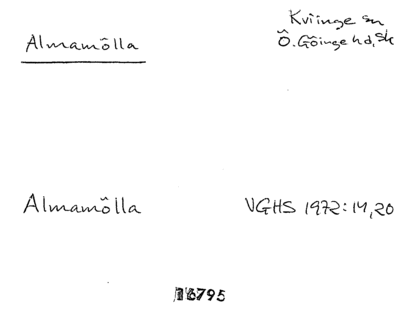 Almamölla
Kviinge sn
Ö. Göinge hd, Sk
Almamölla
VGHS 1972: 14, 20
16795